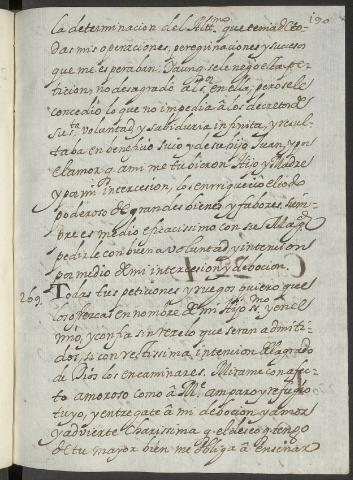 190
la determinacion del Altt.mo que tenia de to-
das mis operaciones, peregrinaciones, y sucesos
que me esperaban. Y aunq. se le nego esta pe-
ticion, no desagrado al s.r en ella, pero se le
concedio lo que no impedia a los decretos de
su s.ta voluntad y sabiduria infinita, y resul-
taba en beneficio suyo y de su hijo Juan, y por
el amor q. a mi me tubieron Hijo y Madre
y por mi intercesion, los enriquecio el todo
poderoso de grandes bienes y fabores. Siem-
pre es medio eficacissimo con su Mag.d
pedirle con buena voluntad y intencion
por medio de mi intercesion y debocion.
269. Todas tus peticiones y ruegos quiero que
los ofrezcas en nombre de mi Hijo ss.mo y en el
mio, y confia sin rezelo que seran admiti-
dos, si con rectissima intencion del agrado
de Dios los encaminares. Mirame con afec-
to amoroso como a M.e amparo y refugio
tuyo, y entregate a mi debocion y amor
y advierte charissima q. el deseo q. tengo
de tu mayor bien me obliga a enseñar